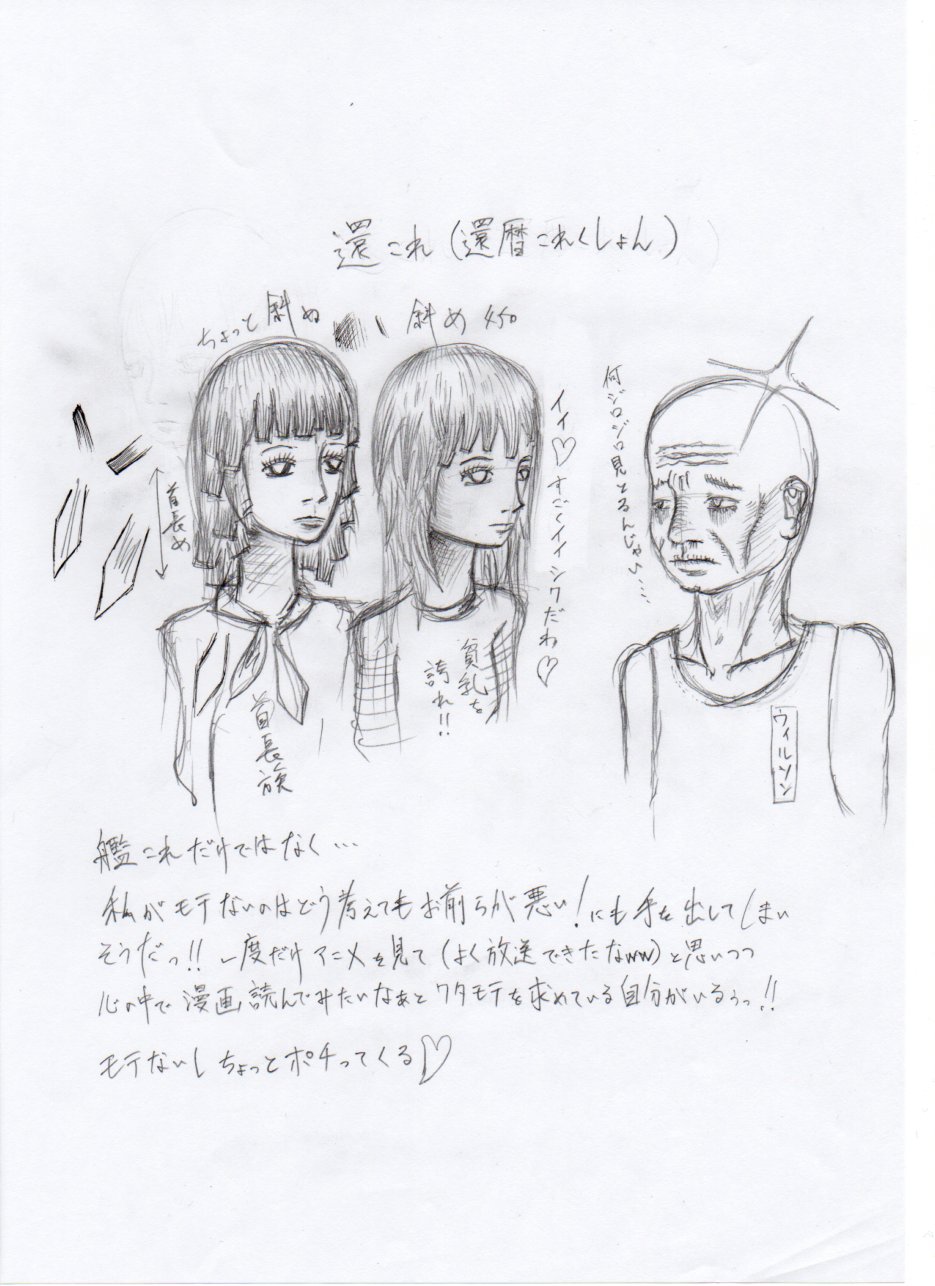 還これ(還暦これくしょん)
ちょっと斜め
斜め45°
首長め
イイ♡すごくイイシワだわ♡
何ジロジロ見とるんじゃい……
首長族
貧乳を
誇れ!!
ウィルソン
艦これだけではなく…
私がモテないのはどう考えてもお前らが悪い!にも手を出してしまい
そうだっ!!一度だけアニメを見て(よく放送できたなww)と思いつつ
心の中で漫画読んでみたいなぁとワタモテを求めている自分がいるぅっ!!
モテないしちょっとポチってくる♡